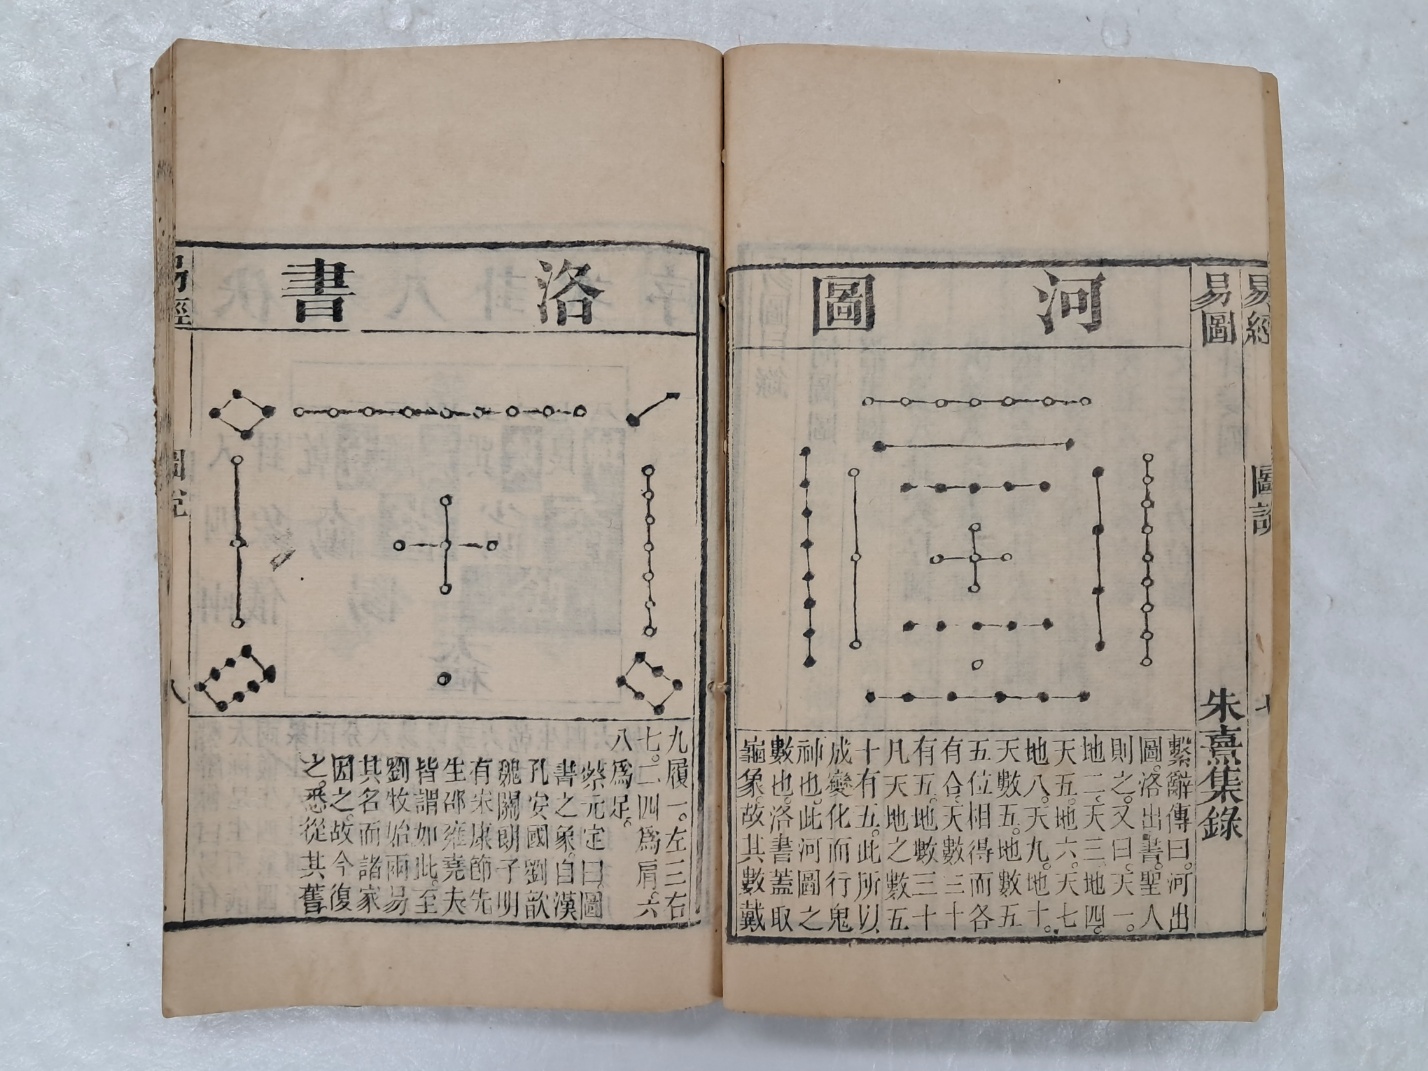 易經
圖說
七
易圖
朱熹集錄
河圖
繫辭傳曰。河出
圖。洛出書。聖人
則之。又曰。天一。
地二。天三。地四。
天五。地六。天七
地八。天九。地十。
天數五。地數五
五位相得而各
有合。天數二十
有五。地數三十
凡天地之數五
十有五。此所以
成變化而行鬼
神也。此河圖之
數也。洛書蓋取
龜象。故其數戴
洛書
九履一。左三右
七。二四爲肩。六
八爲足。
蔡元定曰圖
書之象自漢
孔安國劉歆
魏關朗子明
有宋康節先
生邵雍堯夫
皆謂如此。至
劉牧始兩易
其名而諸家
因之。故今復
之。悉從其舊
易經
圖說
八